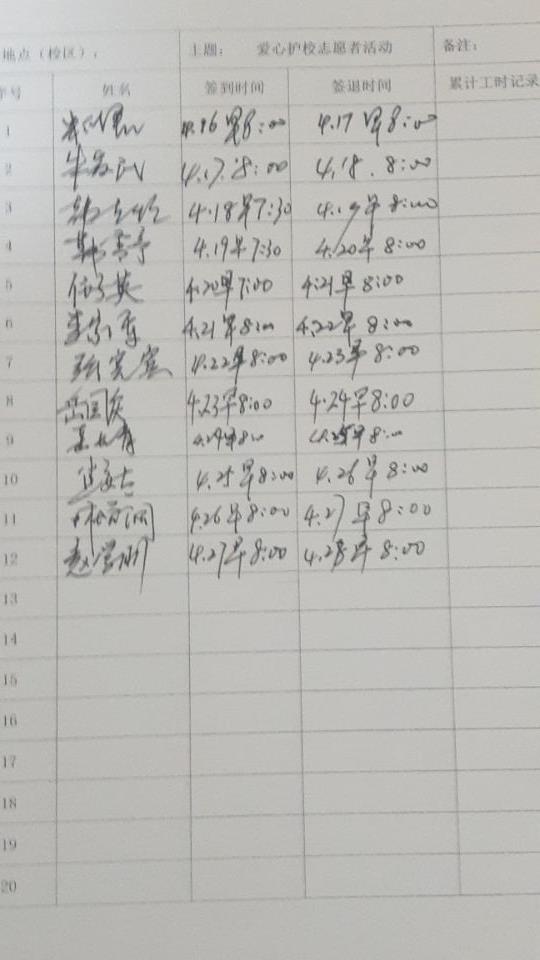 地点（校区）： 主题： 爱心护校志愿者活动 备注：
序号 姓名 签到时间 签退时间 累计工时记录
1 4.16早8:00 4.17早8:00
2 4.17.8:00 4.18.8:00
3 4.18早7:30 4.19早8:00
4 4.19早7:30 4.20早8:00
5 4.20早7:00 4.21早8:00
6 4.21早8:00 4.22早8:00
7 4.22早8:00 4.23早8:00
8 4.23早8:00 4.24早8:00
9 4.24早8:00 4.25早8:00
10 4.25早8:00 4.26早8:00
11 4.26早8:00 4.27早8:00
12 4.27早8:00 4.28早8:00
13
14
15
16
17
18
19
20